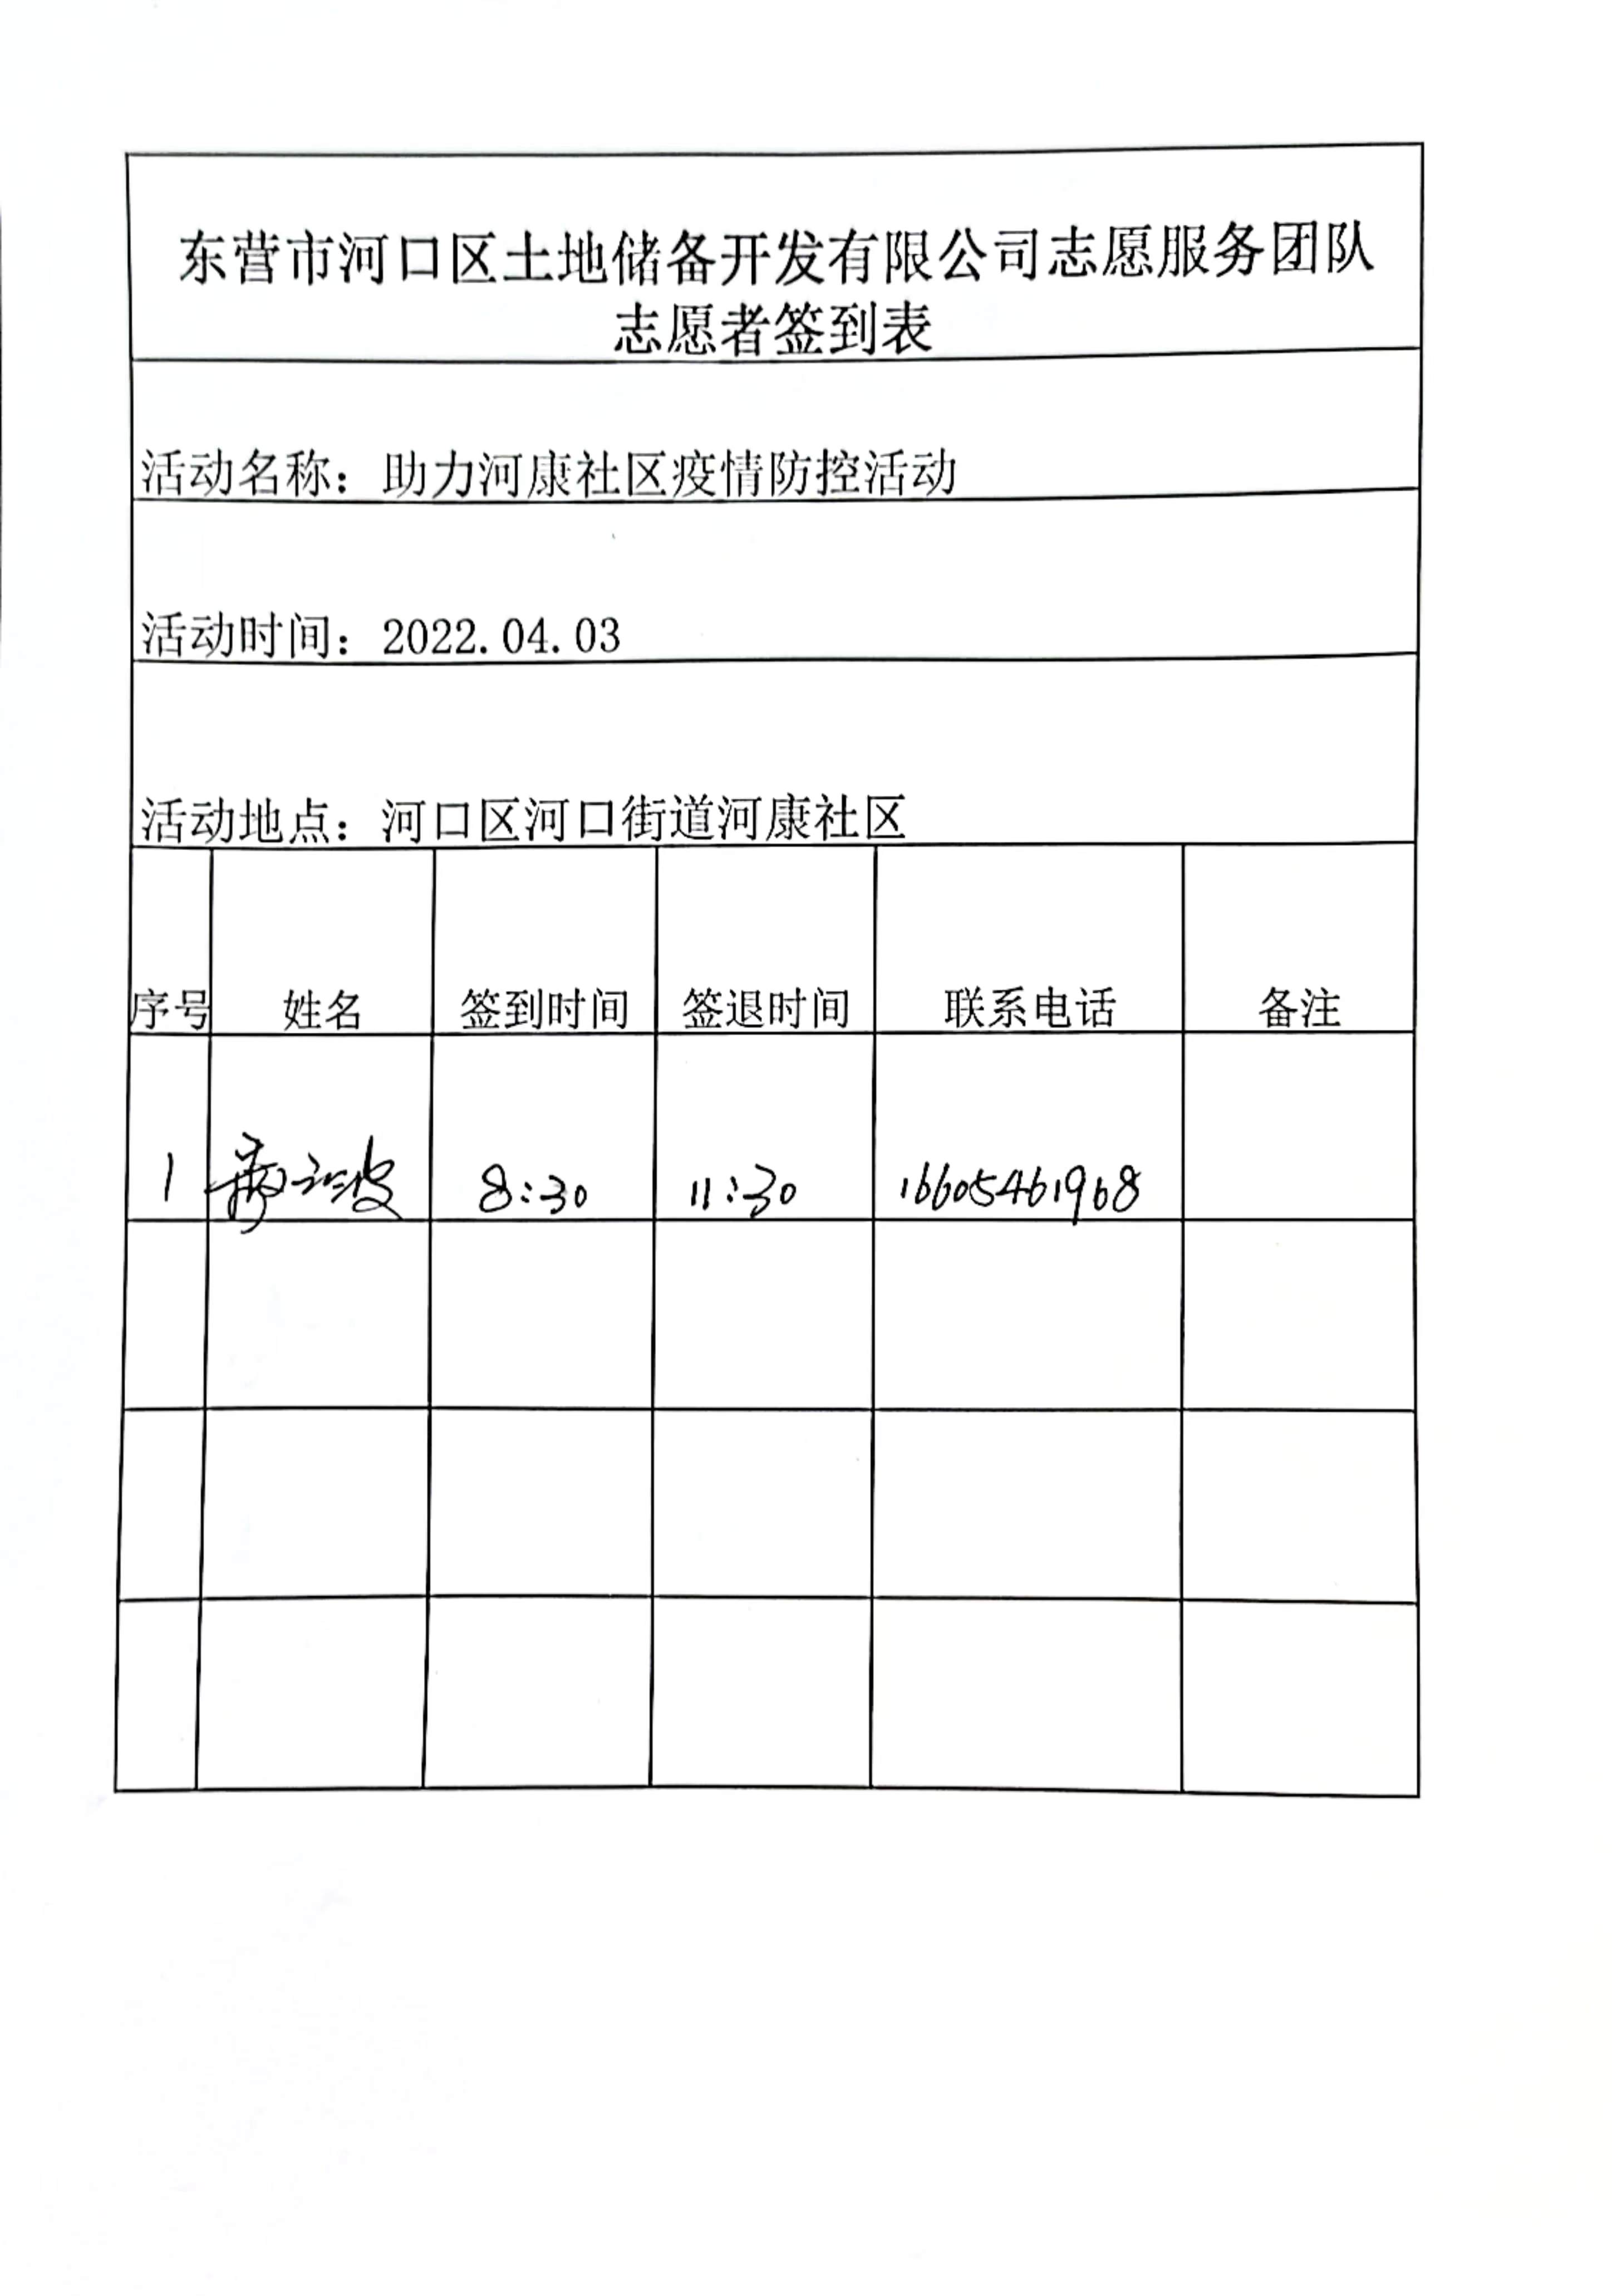 东营市河口区土地储备开发有限公司志愿服务团队
志愿者签到表
活动名称：助力河康社区疫情防控活动
活动时间：2022.04.03
活动地点：河口区河口街道河康社区
序号 姓名 签到时间 签退时间 联系电话 备注
1 8:30 11:30 16605461968